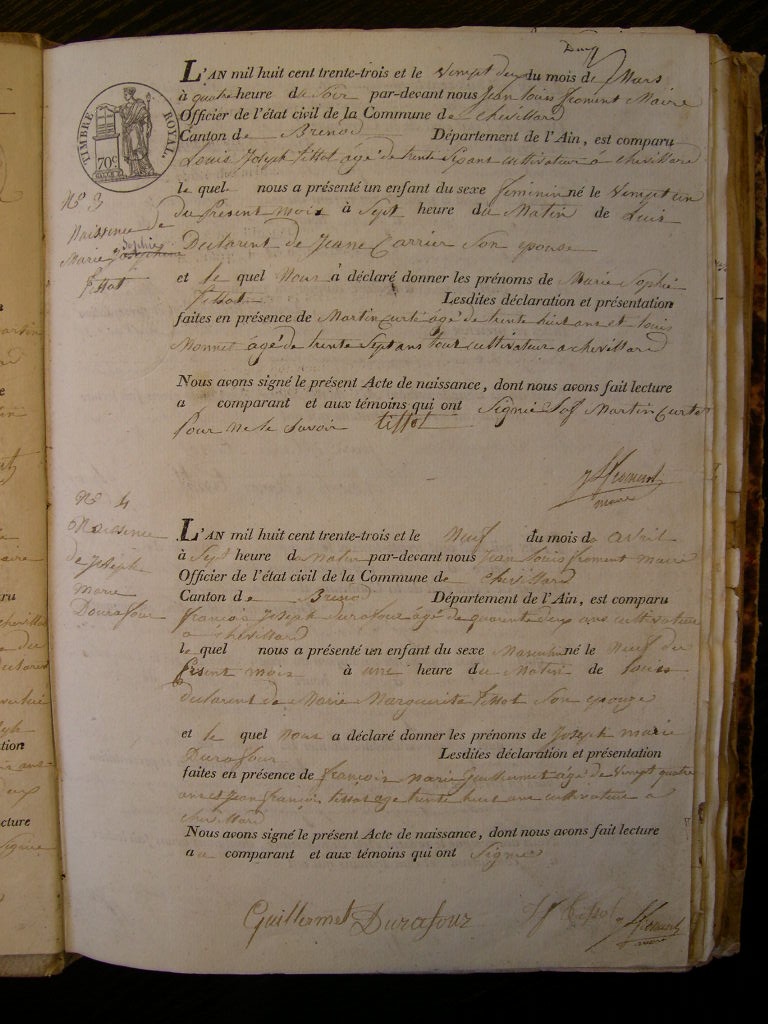 L'AN mil huit cent trente-trois et le vingt deux du mois de Mars
à quatre heure du Soir par-devant nous Jean Louis froment Maire
Officier de l'état civil de la Commune de chevillard
Canton de Brenod Département de l'Ain, est comparu
Louis Joseph tissot agé de trente Sept ans cultivateur a chevillard
le quel nous a présenté un enfant du sexe feminin né le Vingt un
du present mois à Sept heure du Matin de Luis
Declarent de Jeane Carrier Son epouse
et le quel Nous a déclaré donner les prénoms de Marie Sophie
tissot Lesdites déclaration et présentation
faites en présence de Martin Curte agé de trente huit ans et louis
Monnet agé de trente Sept ans tout cultivateur a chevillard
Nous avons signé le présent Acte de naissance, dont nous avons fait lecture
a comparant et aux témoins qui ont Signié Martin Curte
pour ne le Savoir tissot
froment
maire
TIMBRE ROYAL
70c
N° 3
Naissance de
Marie Sophie
tissot
N° 4
Naissance
de Joseph
marie
Dourafour
L'AN mil huit cent trente-trois et le Neuf du mois de avril
à Sept heure du Matin par-devant nous Jean Louis froment maire
Officier de l'état civil de la Commune de chevillard
Canton de Brenod Département de l'Ain, est comparu
françois Joseph Durafour agé de quarente deux ans cultivateur
a chevillard
le quel nous a présenté un enfant du sexe Masculin né le Neuf du
présent mois à une heure du Matin de louis
declarent de Marie Marguerite tissot Son epouze
et le quel nous a déclaré donner les prénoms de Joseph marie
Durafour Lesdites déclaration et présentation
faites en présence de françois Marie Guillermet agé de Vingt quatre
ans et Jean françois tissot age trente huit ans cultivateur a
chevillard
Nous avons signé le présent Acte de naissance, dont nous avons fait lecture
a comparant et aux témoins qui ont Signé
Guillermet Durafour Jf tissot froment
maire